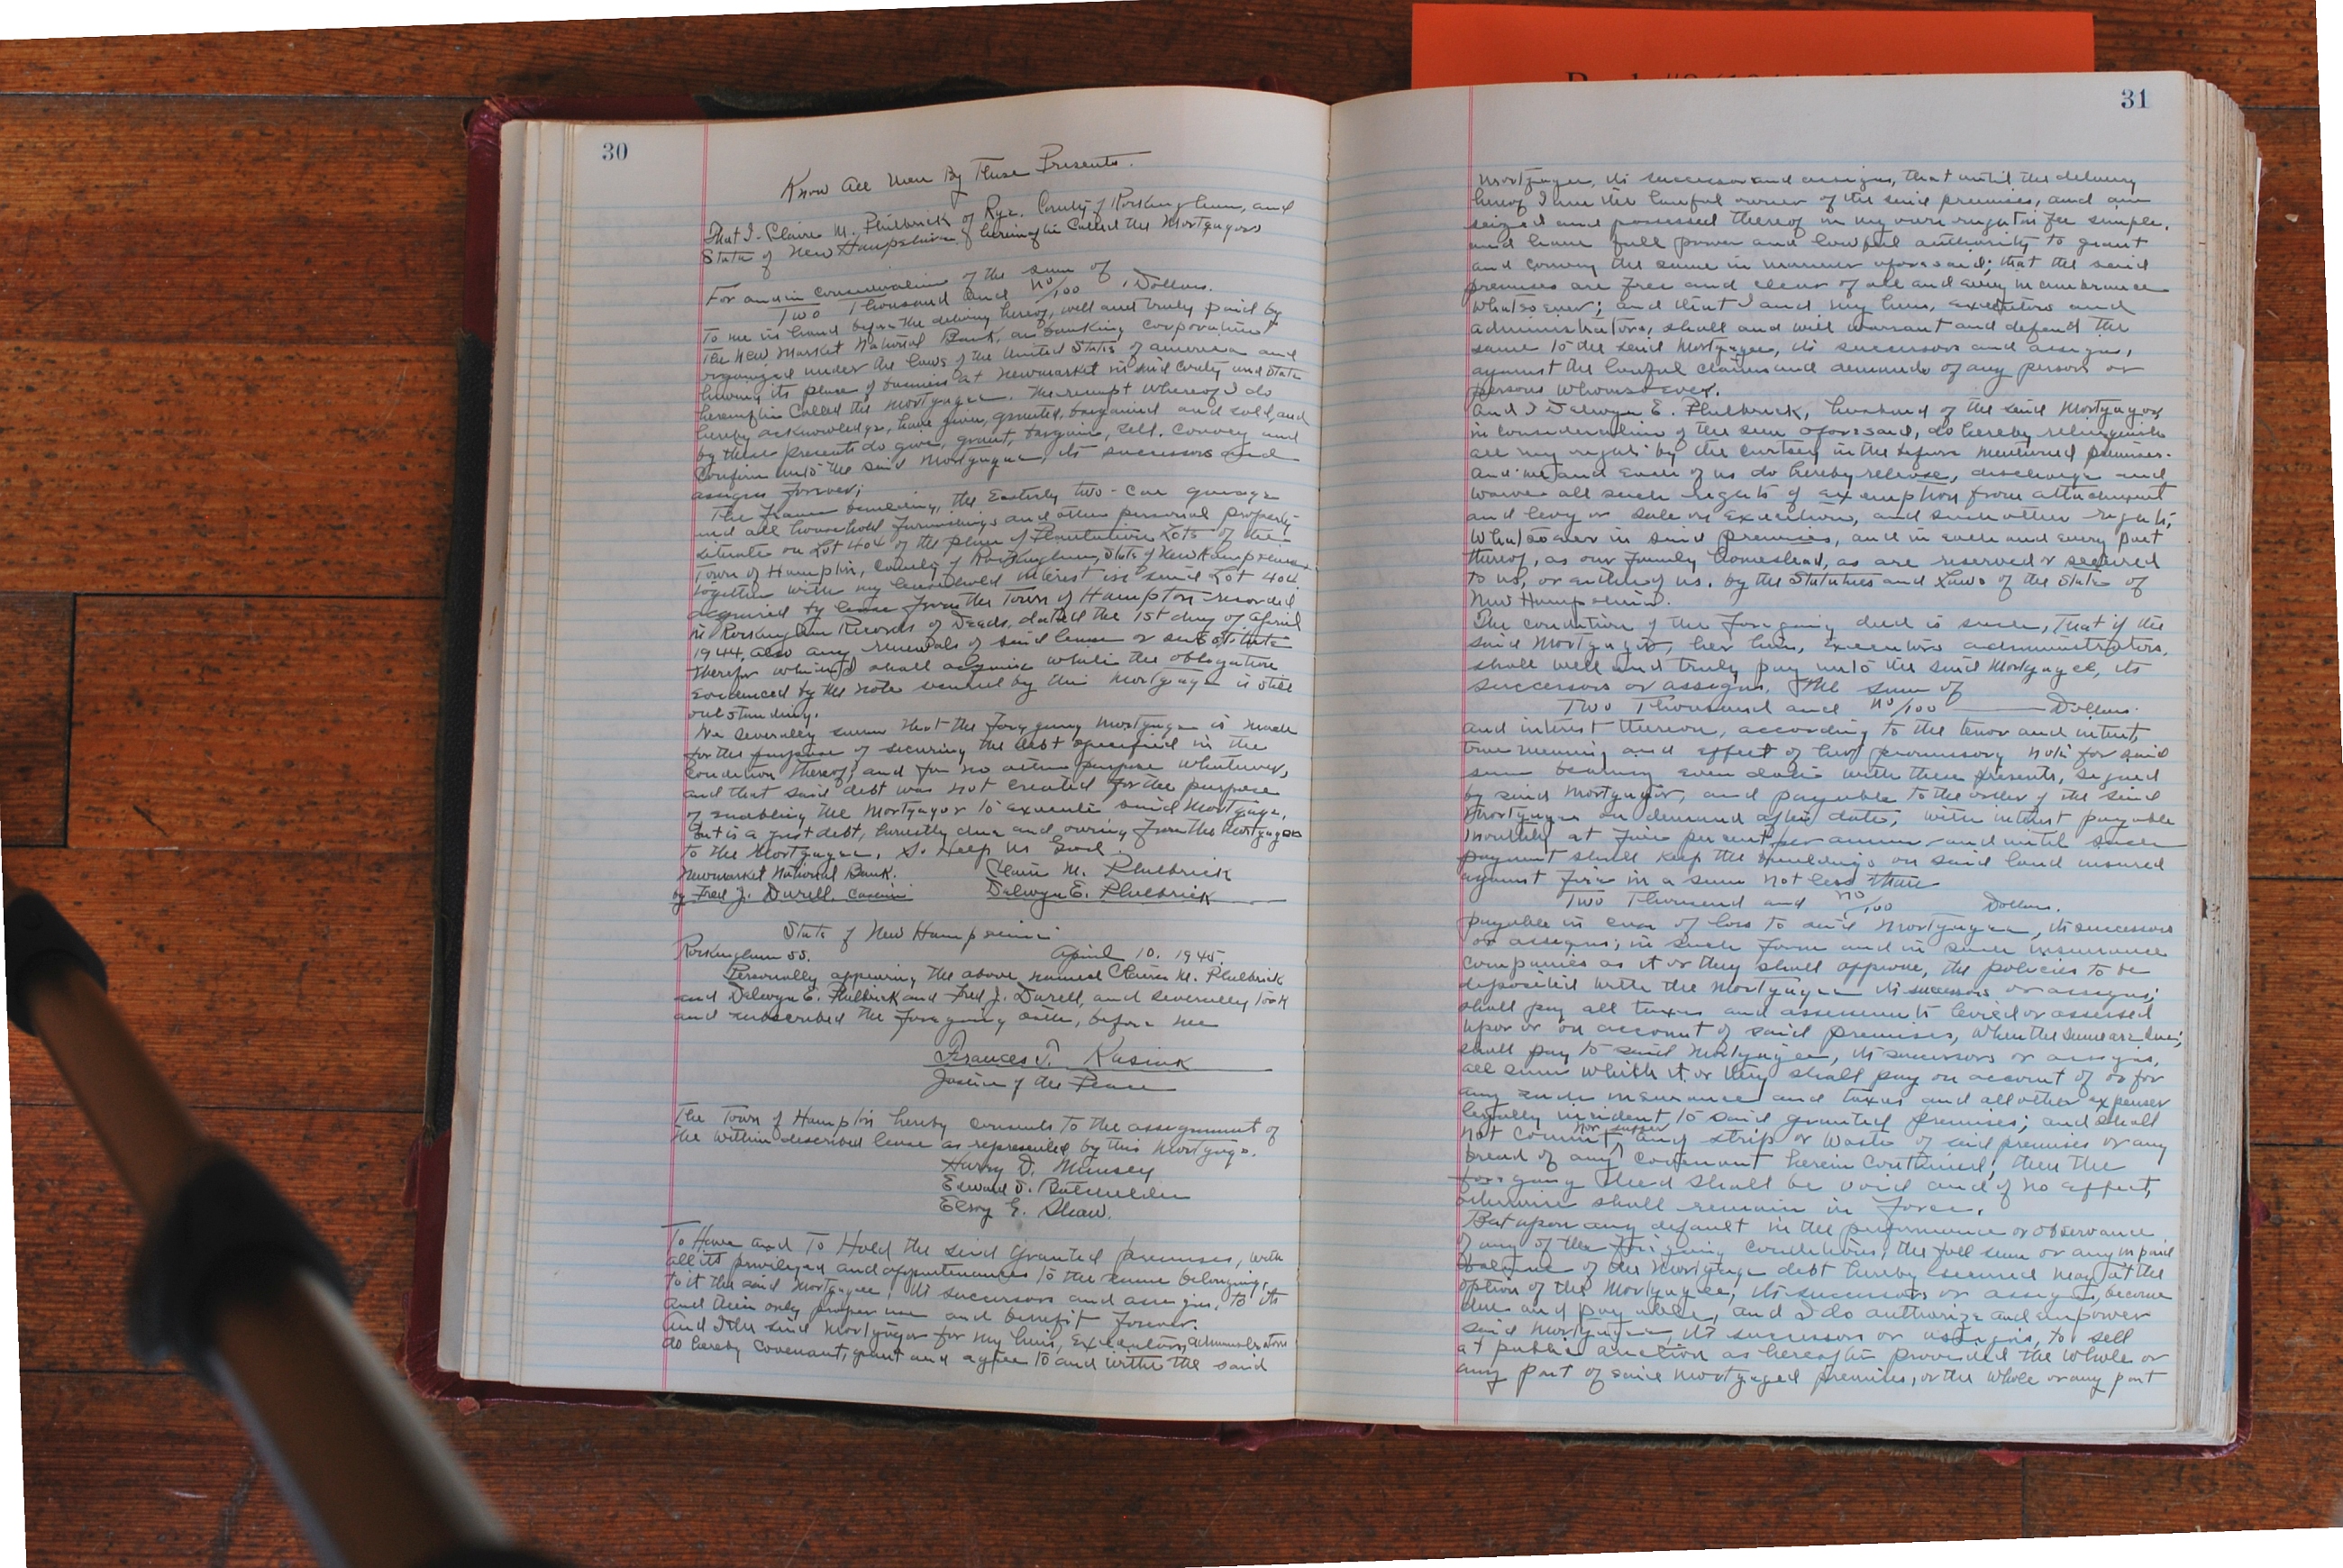 30
Know All Men By These Presents.
That I- Claire M. Philbrick of Rye. County of Rockingham, and
State of New Hampshire hereinafter called the Mortgagor
For and in consideration of the sum of
Two Thousand and no/100 Dollars.
To me in hand before the delivery hereof, well and truly paid by
The New Market National Bank, a banking corporation
organized under the laws of the United States of america and
having its place of business at Newmarket in said County and State
hereinafter called the Mortgagee. The receipt whereof I do
hereby acknowledge, have given, granted, bargained and sold, and
by these presents do give, grant, bargain, sell, convey and
confirm unto the said Mortgagee, its successors and
assigns forever;
The frame building, the Easterly two-car garage
and all household furnishings and other personal property
situate on Lot 404 of the plan of Plantation Lots of the
Town of Hampton, County of Rockingham, State of New Hampshire
together with my leasehold interest in said Lot 404
acquired by lease from the Town of Hampton recorded
in Rockingham Records of Deeds, dated the 1st day of April
1944, also any renewals of said lease or substitute
therefor which I shall acquire while the obligation
evidenced by the note secured by this mortgage is still
outstanding.
We severally swear that the foregoing mortgage is made
for the purpose of securing the debt specified in the
condition thereof, and for no other purpose whatever,
and that said debt was not created for the purpose
of enabling the Mortgagor to execute said Mortgage,
but is a just debt, honestly due and owing from the Mortgagor
to the Mortgagee. So Help Us God.
Newmarket National Bank. Claire M. Philbrick
by Fred J. Durell. Cashier Delwyn E. Philbrick
State of New Hampshire
Rockingham SS. April 10. 1945.
Personally appearing the above named Claire M. Philbrick
and Delwyn E. Philbrick and Fred J. Durell, and severally took
and subscribed the foregoing oath, before me
Frances T. Kusiak
Justice of the Peace
The Town of Hampton hereby consents to the assignment of
the within described lease as represented by this Mortgage.
Harry D. Munsey
Edward S. Batchelder
Elroy G. Shaw.
To Have and To Hold the said granted premises, with
all its privileges and appurtenances to the same belonging,
to it the said Mortgagee, its successors and assigns, to its
and their only proper use and benefit forever.
And I the said Mortgagor for my heirs, executors, administrators
do hereby covenant, grant and agree to and with the said
31
mortgagee, its successors and assigns, that until the delivery
hereof I am the lawful owner of the said premises, and am
seized and possessed thereof in my own right in fee simple,
and have full power and lawful authority to grant
and convey the same in manner aforesaid; that the said
premises are free and clear of all and every incumbrance
whatsoever; and that I and my heirs, executors and
administrators, shall and will warrant and defend the
same to the said Mortgagee, its successors and assigns,
against the lawful claims and demands of any person or
persons whomsoever.
And I Delwyn E. Philbrick, husband of the said Mortgagor
in consideration of the sum aforesaid, do hereby relinquish
all my right by the curtesy in the before mentioned premises.
And we and each of us do hereby release, discharge and
waive all such rights of exemption from attachment
and levy or sale on execution, and such other rights,
whatsoever in said premises, and in each and every part
thereof, as our Family Homestead, as are reserved or secured
to us, or either of us, by the Statutes and Laws of the State of
New Hampshire.
The condition of the foregoing deed is such, That if the
said Mortgagor, her heirs, executors administrators,
shall well and truly pay unto the said Mortgagee, its
successors or assigns, The sum of
Two Thousand and no/100 Dollars.
and interest thereon, according to the tenor and intent,
true meaning and effect of her promissory note for said
sum bearing even date with these presents, signed
by said Mortgagor, and payable to the order of the said
Mortgagee on demand after date, with interest payable
monthly at Five percent per annum and until such
payment shall keep the buildings on said land insured
against fire in a sum not less than
Two Thousand and no/100 Dollars.
payable in case of loss to said Mortgagee, its successors
or assigns; in such form and in such insurance
companies as it or they shall approve, the policies to be
deposited with the Mortgagee its successors or assigns;
shall pay all taxes and assessments levied or assessed
upon or on account of said premises, when the same are due;
shall pay to said Mortgagee, its successors or assigns,
all sums which it or they shall pay on account of or for
any such insurance and taxes and all other expenses
legally incident to said granted premises; and shall
not commit nor suffer any strip or waste of said premises or any
breach of any covenant herein contained; then the
foregoing deed shall be void and of no effect,
otherwise shall remain in force.
But upon any default in the performance or observance
of any of the foregoing conditions, the full sum or any unpaid
balance of the Mortgage debt hereby secured may at the
option of the Mortgagee, its successors or assigns, become
due and payable, and I do authorize and empower
said Mortgagee, its successors or assigns, to sell
at public auction as hereafter provided the whole or
any part of said mortgaged premises, or the whole or any part